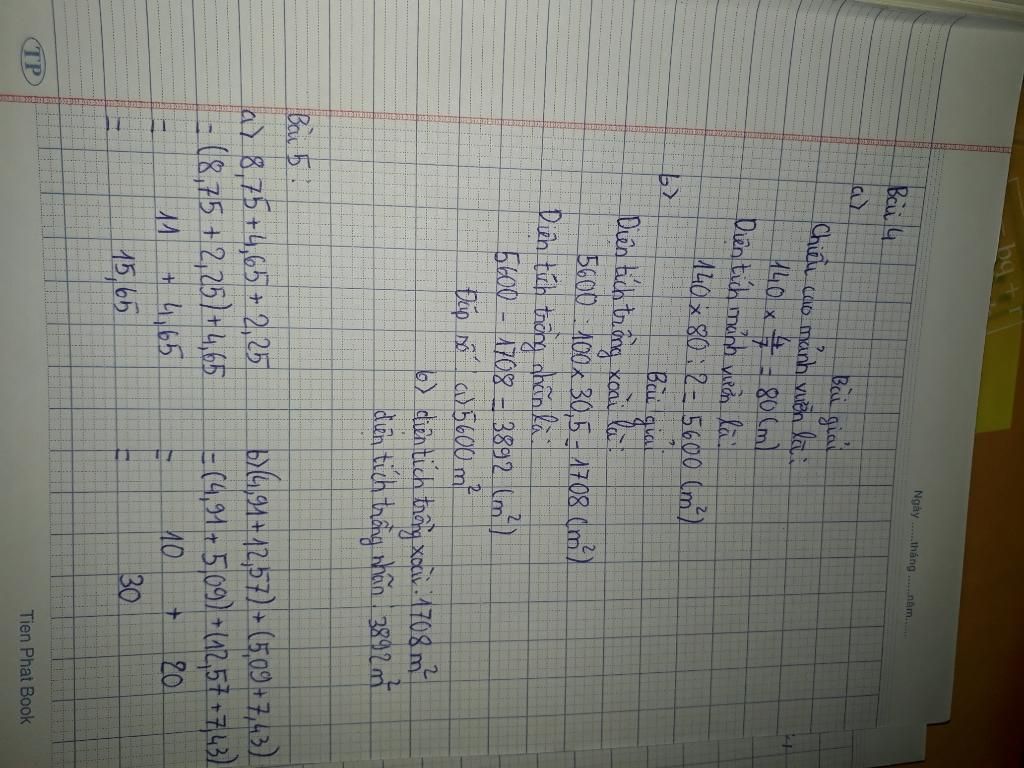 Ngày ......tháng ......năm......
Bài 4
a) Bài giải
Chiều cao mảnh vườn là:
140 x 4/7 = 80 (m)
Diện tích mảnh vườn là:
140 x 80 : 2 = 5600 (m²)
b) Bài giải
Diện tích trồng xoài là:
5600 : 100 x 30,5 = 1708 (m²)
Diện tích trồng nhãn là:
5600 - 1708 = 3892 (m²)
Đáp số: a) 5600 m²
b) diện tích trồng xoài: 1708 m²
diện tích trồng nhãn: 3892 m²
Bài 5:
a) 8,75 + 4,65 + 2,25 b) (4,91 + 12,57) + (5,09 + 7,43)
= (8,75 + 2,25) + 4,65 = (4,91 + 5,09) + (12,57 + 7,43)
= 11 + 4,65 = 10 + 20
= 15,65 = 30
TP
Tien Phat Book